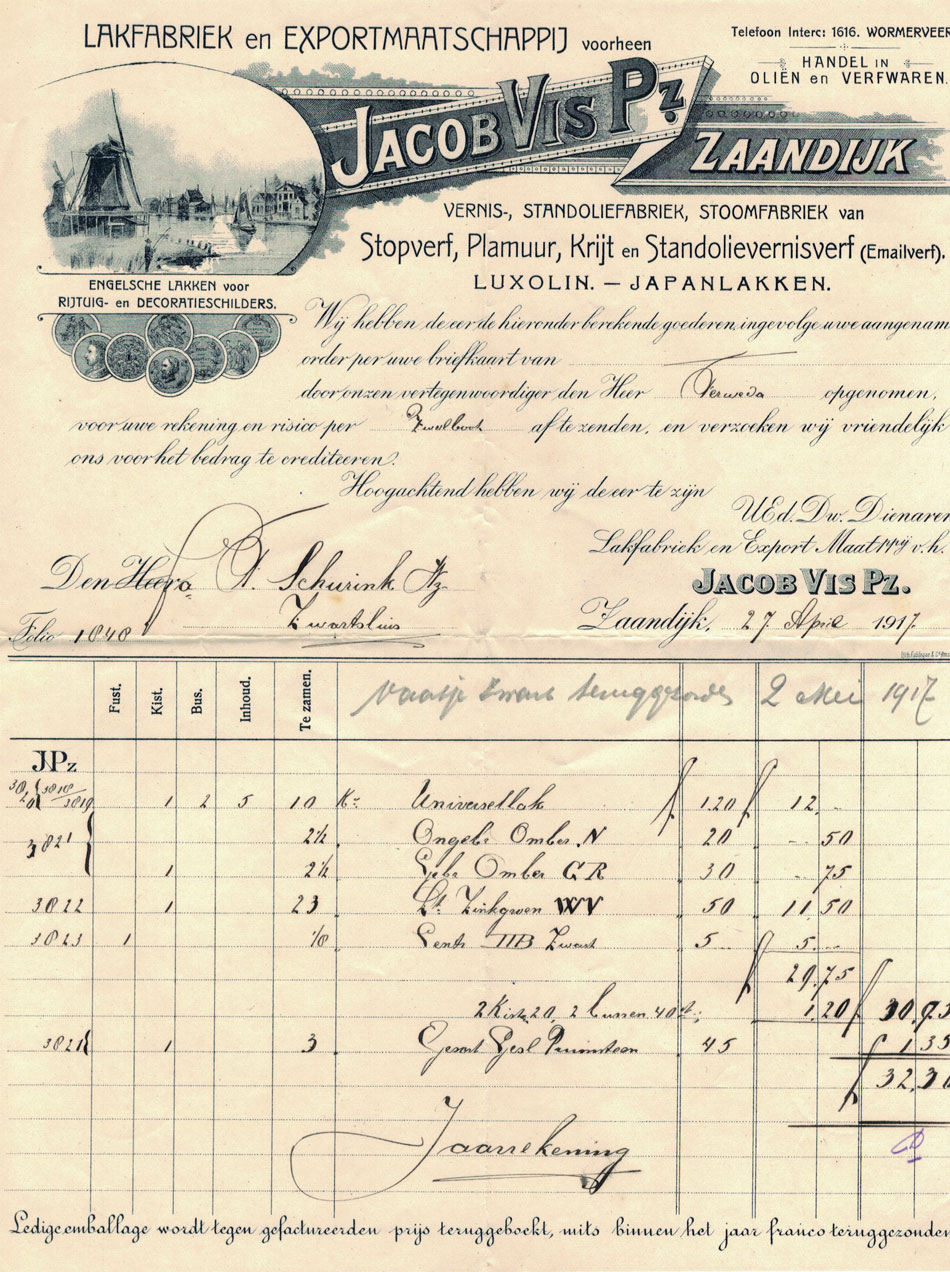 LAKFABRIEK en EXPORTMAATSCHAPPIJ voorheen
Telefoon Interc: 1616. WORMERVEER
HANDEL IN
OLIËN en VERFWAREN.
JACOB VIS Pz.
ZAANDIJK
VERNIS-, STANDOLIEFABRIEK, STOOMFABRIEK van
Stopverf, Plamuur, Krijt en Standolievernisverf (Emailverf).
LUXOLIN. — JAPANLAKKEN.
ENGELSCHE LAKKEN voor
RIJTUIG- en DECORATIESCHILDERS.
Wij hebben de eer de hieronder berekende goederen, ingevolge uwe aangenam
order per uwe briefkaart van
door onzen vertegenwoordiger den Heer Ferweda opgenomen,
voor uwe rekening en risico per af te zenden, en verzoeken wij vriendelijk
ons voor het bedrag te crediteeren.
Hoogachtend hebben wij de eer te zijn
UEd. Dw. Dienaren
Lakfabriek en Export Maatppij v.h.
JACOB VIS PZ.
Den Heer Schurink Az.
Zwartsluis
Zaandijk, 27 April 1917.
Folio 1848
Fust. Kist. Bus. Inhoud. Te zamen. vaatje zwart teruggezonden 2 Mei 1917
JPz
3820 { 3818/3819 1 2 5 10 Ko Universellak 120 12.-
3821 2½ Ongebr Omber N 20 -.50
1 2½ Gebr Omber GR 30 -.75
3822 1 23 Lt. Zinkgroen WV 50 11.50
3823 1 ⅛ IIIB Zwart 5.- 5.-
29.75
2 Kistn 20, 2 bussen 40 ct; 1.20 30.95
3821 1 3 Puimsteen 45 1.35
32.30
Jaarrekening
Ledige emballage wordt tegen gefactureerden prijs teruggeboekt, mits binnen het jaar franco teruggezonden